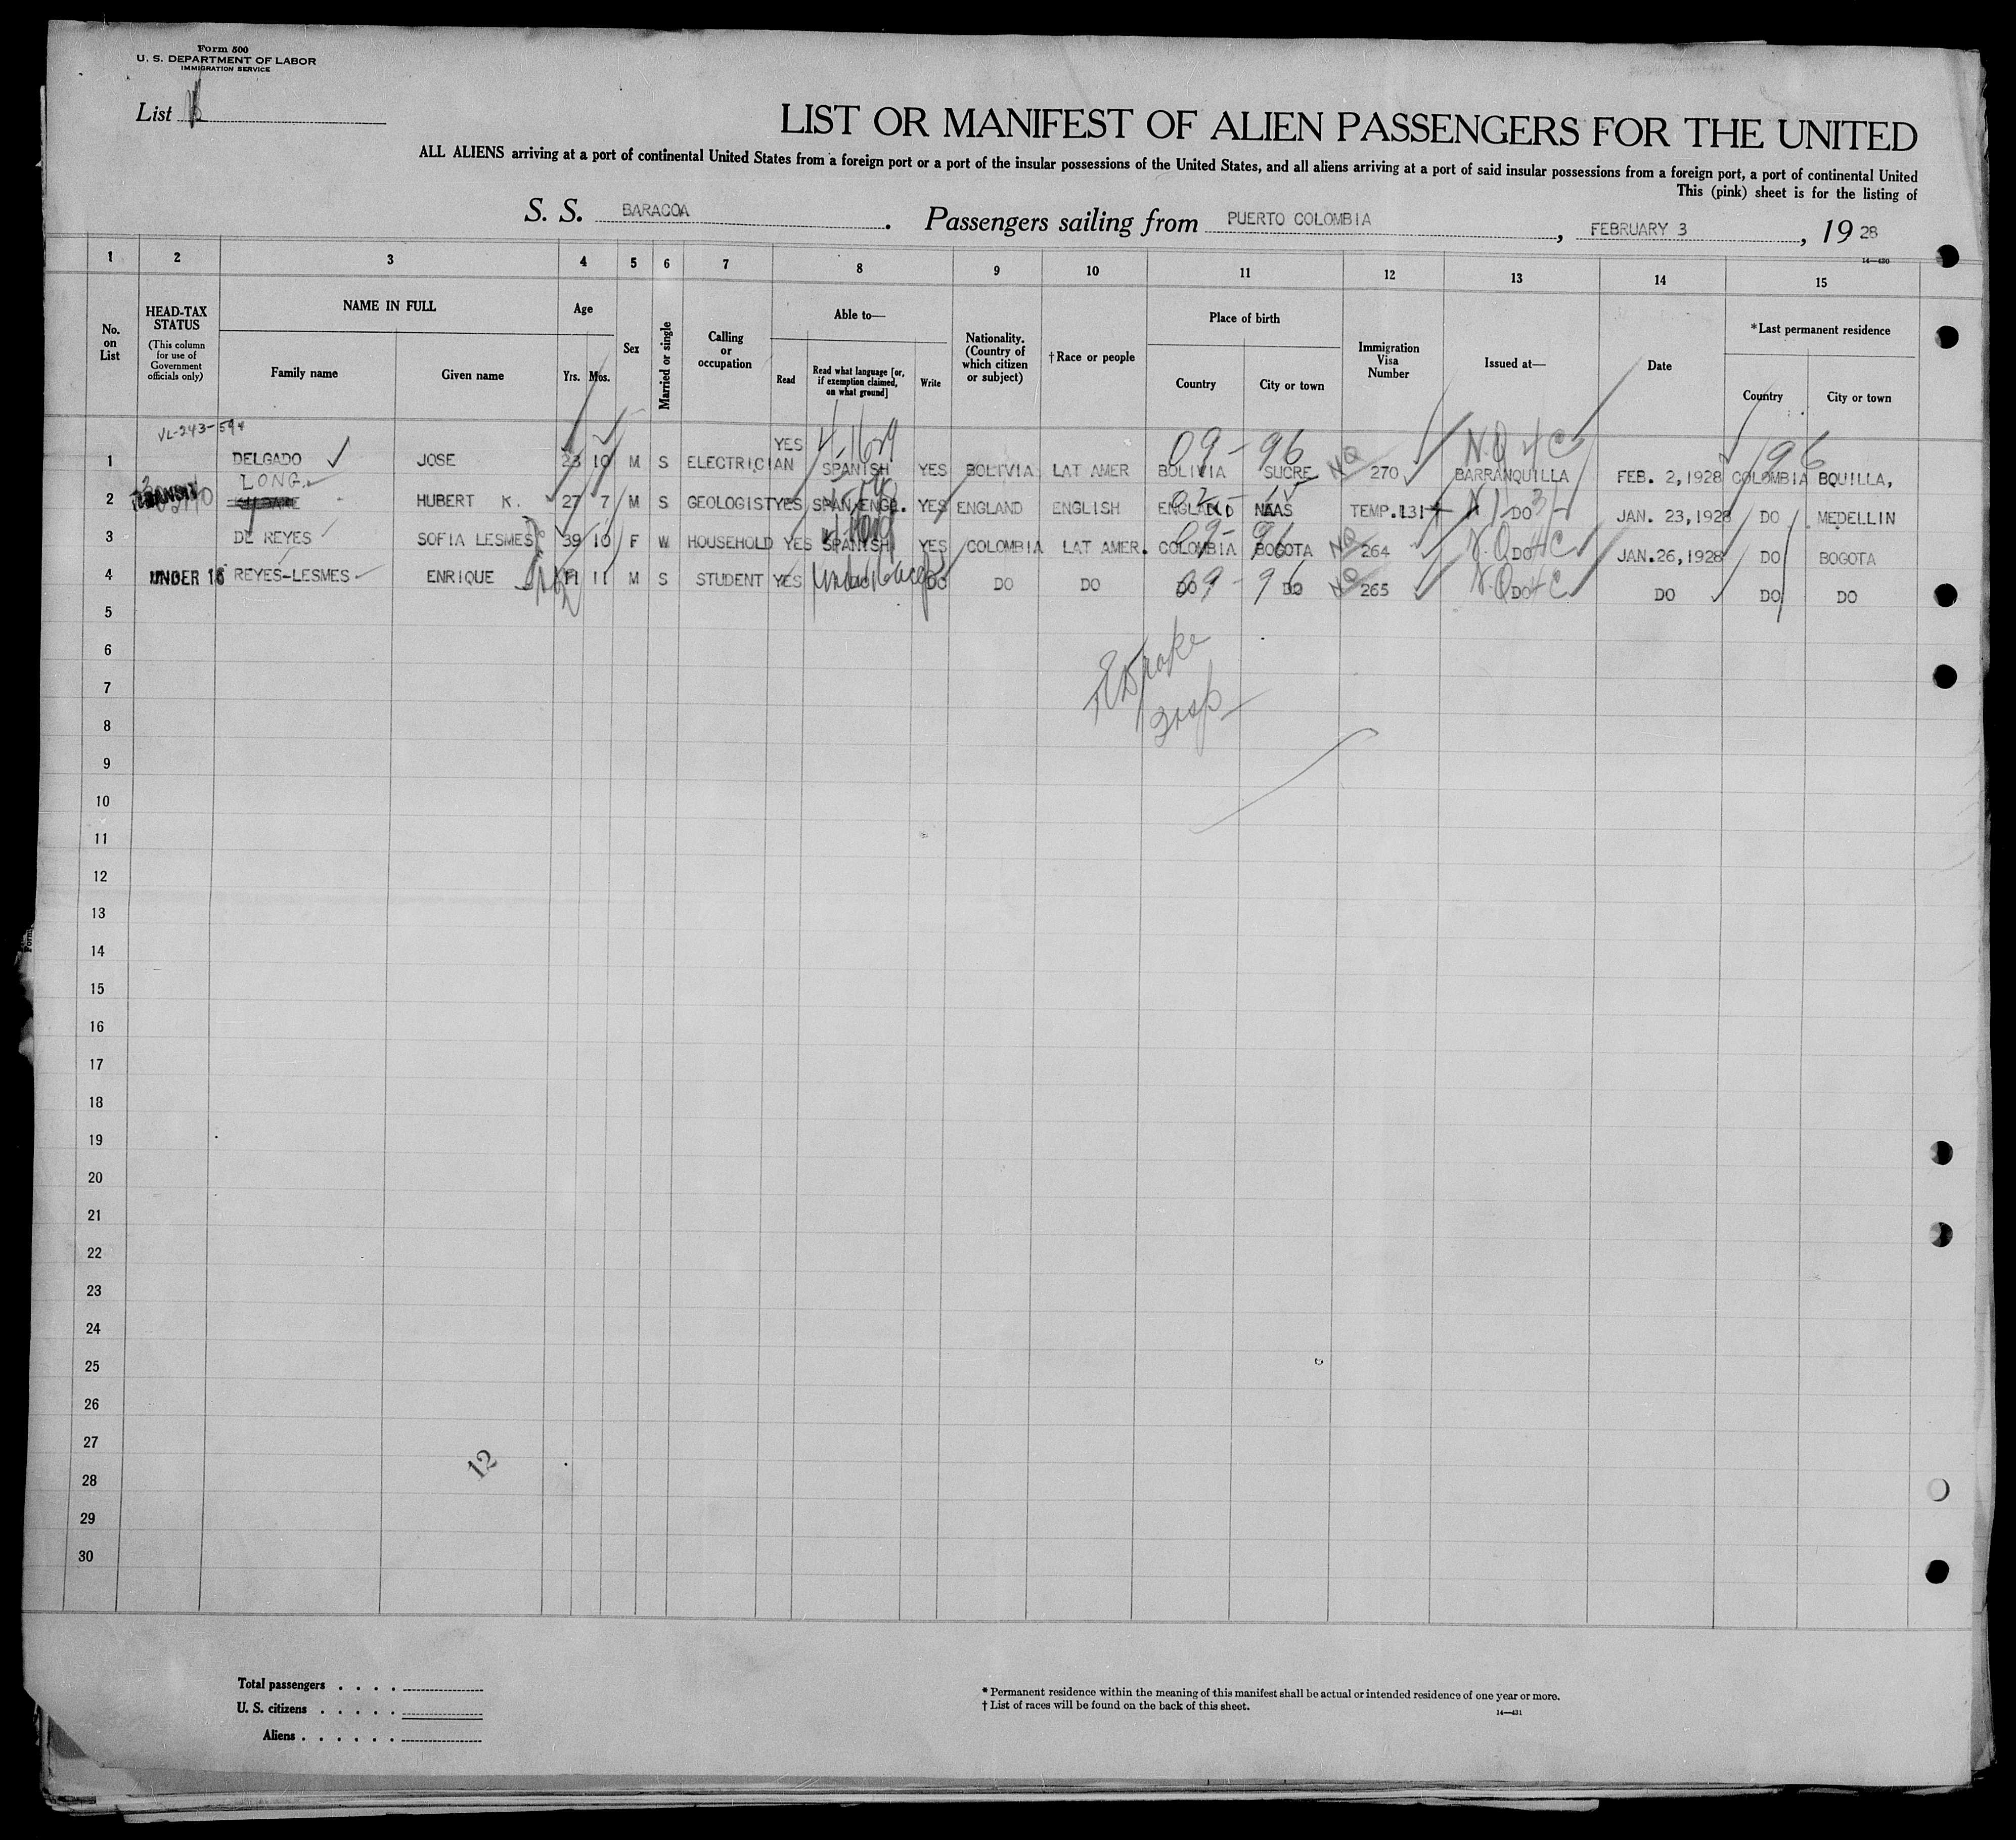 Form 500
U. S. DEPARTMENT OF LABOR
IMMIGRATION SERVICE
List
LIST OR MANIFEST OF ALIEN PASSENGERS FOR THE UNITED
ALL ALIENS arriving at a port of continental United States from a foreign port or a port of the insular possessions of the United States, and all aliens arriving at a port of said insular possessions from a foreign port, a port of continental United
This (pink) sheet is for the listing of
S. S. BARACOA. Passengers sailing from PUERTO COLOMBIA, FEBRUARY 3, 19 28
14—430
1 2 3 4 5 6 7 8 9 10 11 12 13 14 15
No. on List
HEAD-TAX STATUS
(This column for use of Government officials only)
NAME IN FULL
Family name Given name
Age
Yrs. Mos.
Sex
Married or single
Calling or occupation
Able to—
Read
Read what language [or, if exemption claimed, on what ground]
Write
Nationality. (Country of which citizen or subject)
†Race or people
Place of birth
Country City or town
Immigration Visa Number
Issued at—
Date
*Last permanent residence
Country City or town
VL-243-594
1 DELGADO JOSE 23 10 M S ELECTRICIAN YES SPANISH YES BOLIVIA LAT AMER BOLIVIA SUCRE 270 BARRANQUILLA FEB. 2,1928 COLOMBIA BQUILLA,
09-96 NQ N.Q 4C 196
LONG
2 TRANSIT HUBERT K. 27 7 M S GEOLOGIST YES SPAN, ENGL. YES ENGLAND ENGLISH ENGLAND NAAS TEMP. 131 DO JAN. 23,1928 DO MEDELLIN
3 DE REYES SOFIA LESMES 39 10 F W HOUSEHOLD YES SPANISH YES COLOMBIA LAT AMER. COLOMBIA BOGOTA 264 DO JAN.26,1928 DO BOGOTA
09-96 NQ N.Q 4C
4 UNDER 16 REYES-LESMES ENRIQUE 11 11 M S STUDENT YES under 16 DO DO DO DO DO 265 DO DO DO DO
09-96 NQ N.Q 4C
5
6
7
8
9
10
11
12
13
14
15
16
17
18
19
20
21
22
23
24
25
26
27
28
29
30
12
Total passengers
U. S. citizens
Aliens
* Permanent residence within the meaning of this manifest shall be actual or intended residence of one year or more.
† List of races will be found on the back of this sheet.
14—431